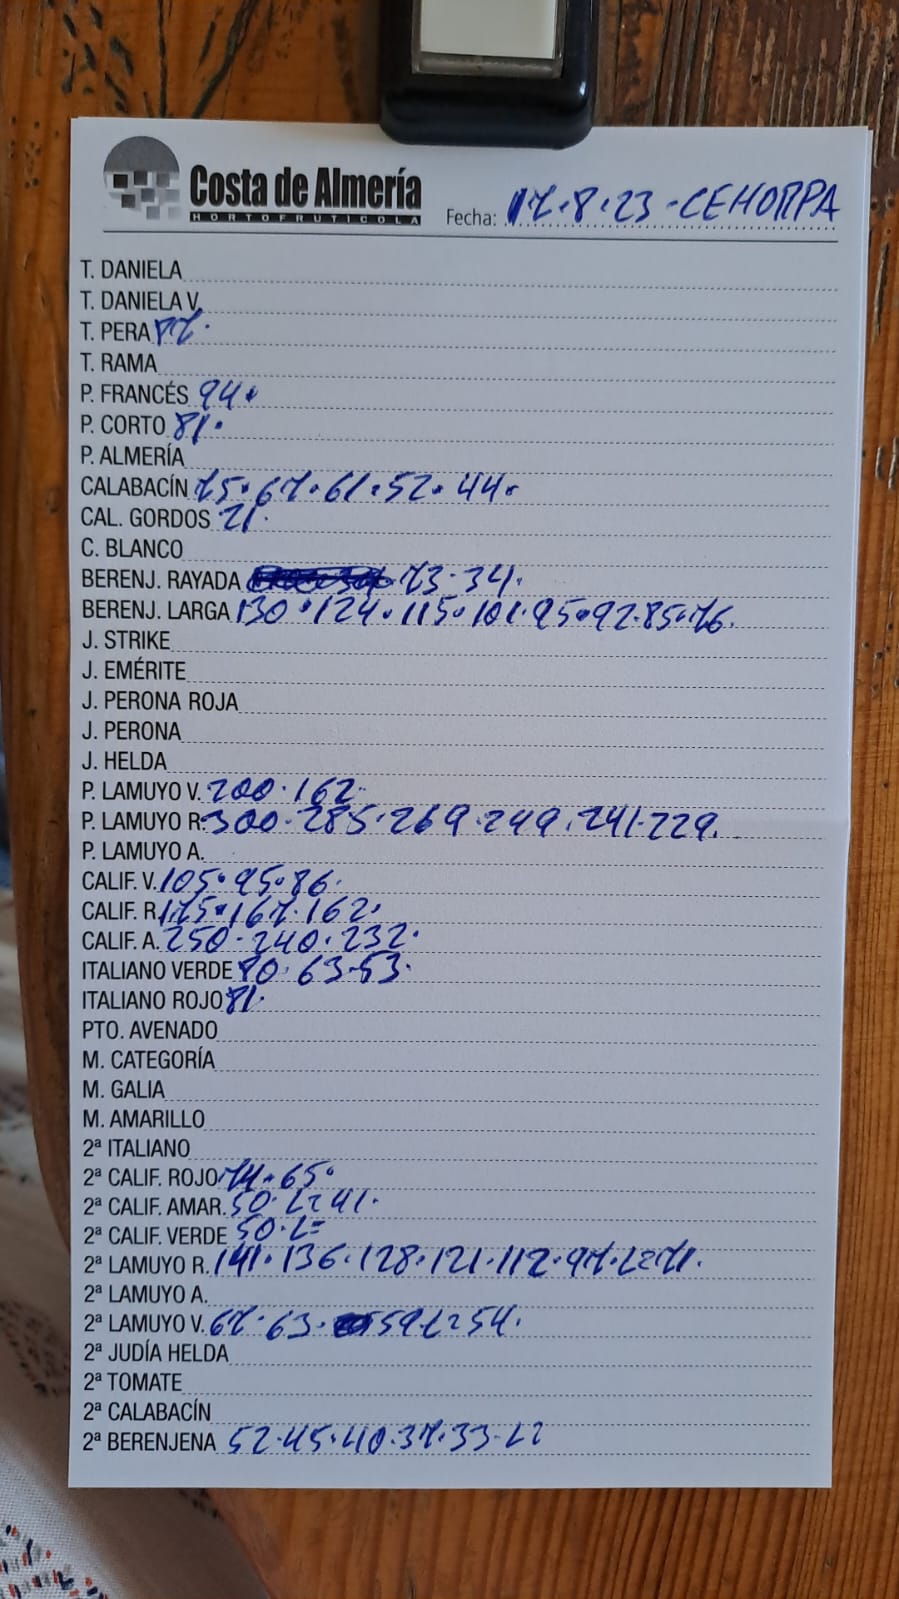 Costa de Almería
HORTOFRUTICOLA
Fecha: 17.8.23-CEHORPA
T. DANIELA
T. DANIELA V.
T. PERA 87.
T. RAMA
P. FRANCÉS 94.
P. CORTO 81.
P. ALMERÍA
CALABACÍN 75.67.61.52.44.
CAL. GORDOS 21.
C. BLANCO
BERENJ. RAYADA 73.34.
BERENJ. LARGA 130.124.115.101.95.92.85.76.
J. STRIKE
J. EMÉRITE
J. PERONA ROJA
J. PERONA
J. HELDA
P. LAMUYO V. 200.162.
P. LAMUYO R. 300.285.269.249.241.229.
P. LAMUYO A.
CALIF. V. 105.95.86.
CALIF. R. 175.167.162.
CALIF. A. 250.240.232.
ITALIANO VERDE 80.63.53.
ITALIANO ROJO 81.
PTO. AVENADO
M. CATEGORÍA
M. GALIA
M. AMARILLO
2ª ITALIANO
2ª CALIF. ROJO 74.65.
2ª CALIF. AMAR. 50.L=41.
2ª CALIF. VERDE 50.L=
2ª LAMUYO R. 141.136.128.121.112.97.L=71.
2ª LAMUYO A.
2ª LAMUYO V. 67.63.59.L=54.
2ª JUDÍA HELDA
2ª TOMATE
2ª CALABACÍN
2ª BERENJENA 52.45.40.37.33.L=